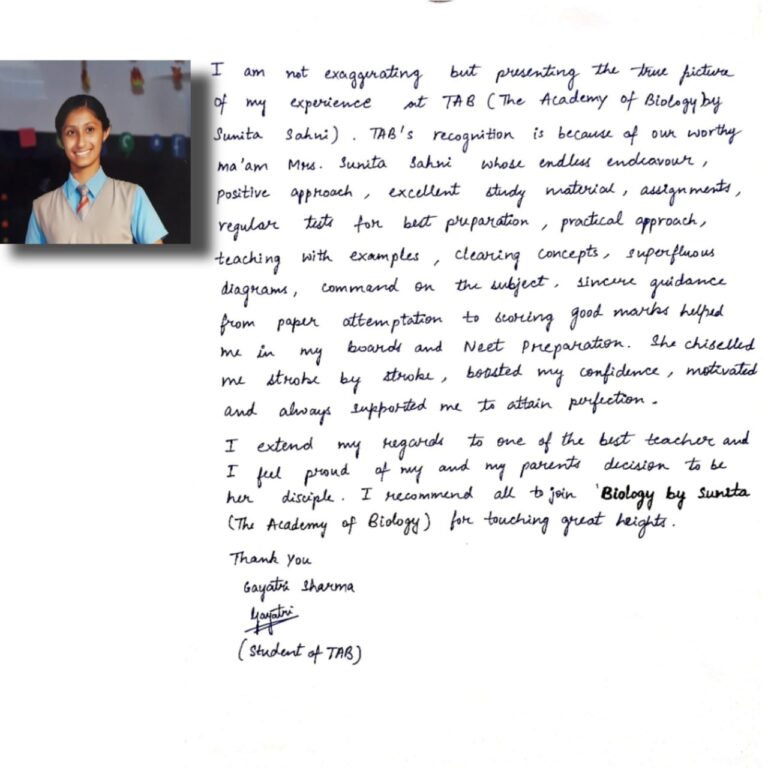 I am not exaggerating but presenting the true picture
of my experience at TAB (The Academy of Biology by
Sunita Sahni). TAB's recognition is because of our worthy
ma'am Mrs. Sunita Sahni whose endless endeavour,
positive approach, excellent study material, assignments,
regular tests for best preparation, practical approach,
teaching with examples, clearing concepts, superfluous
diagrams, command on the subject, sincere guidance
from paper attemptation to scoring good marks helped
me in my boards and Neet Preparation. She chiselled
me stroke by stroke, boosted my confidence, motivated
and always supported me to attain perfection.
I extend my regards to one of the best teacher and
I feel proud of my and my parents decision to be
her disciple. I recommend all to join 'Biology by Sunita
(The Academy of Biology) for touching great heights.
Thank You
Gayatri Sharma
Gayatri
(Student of TAB)